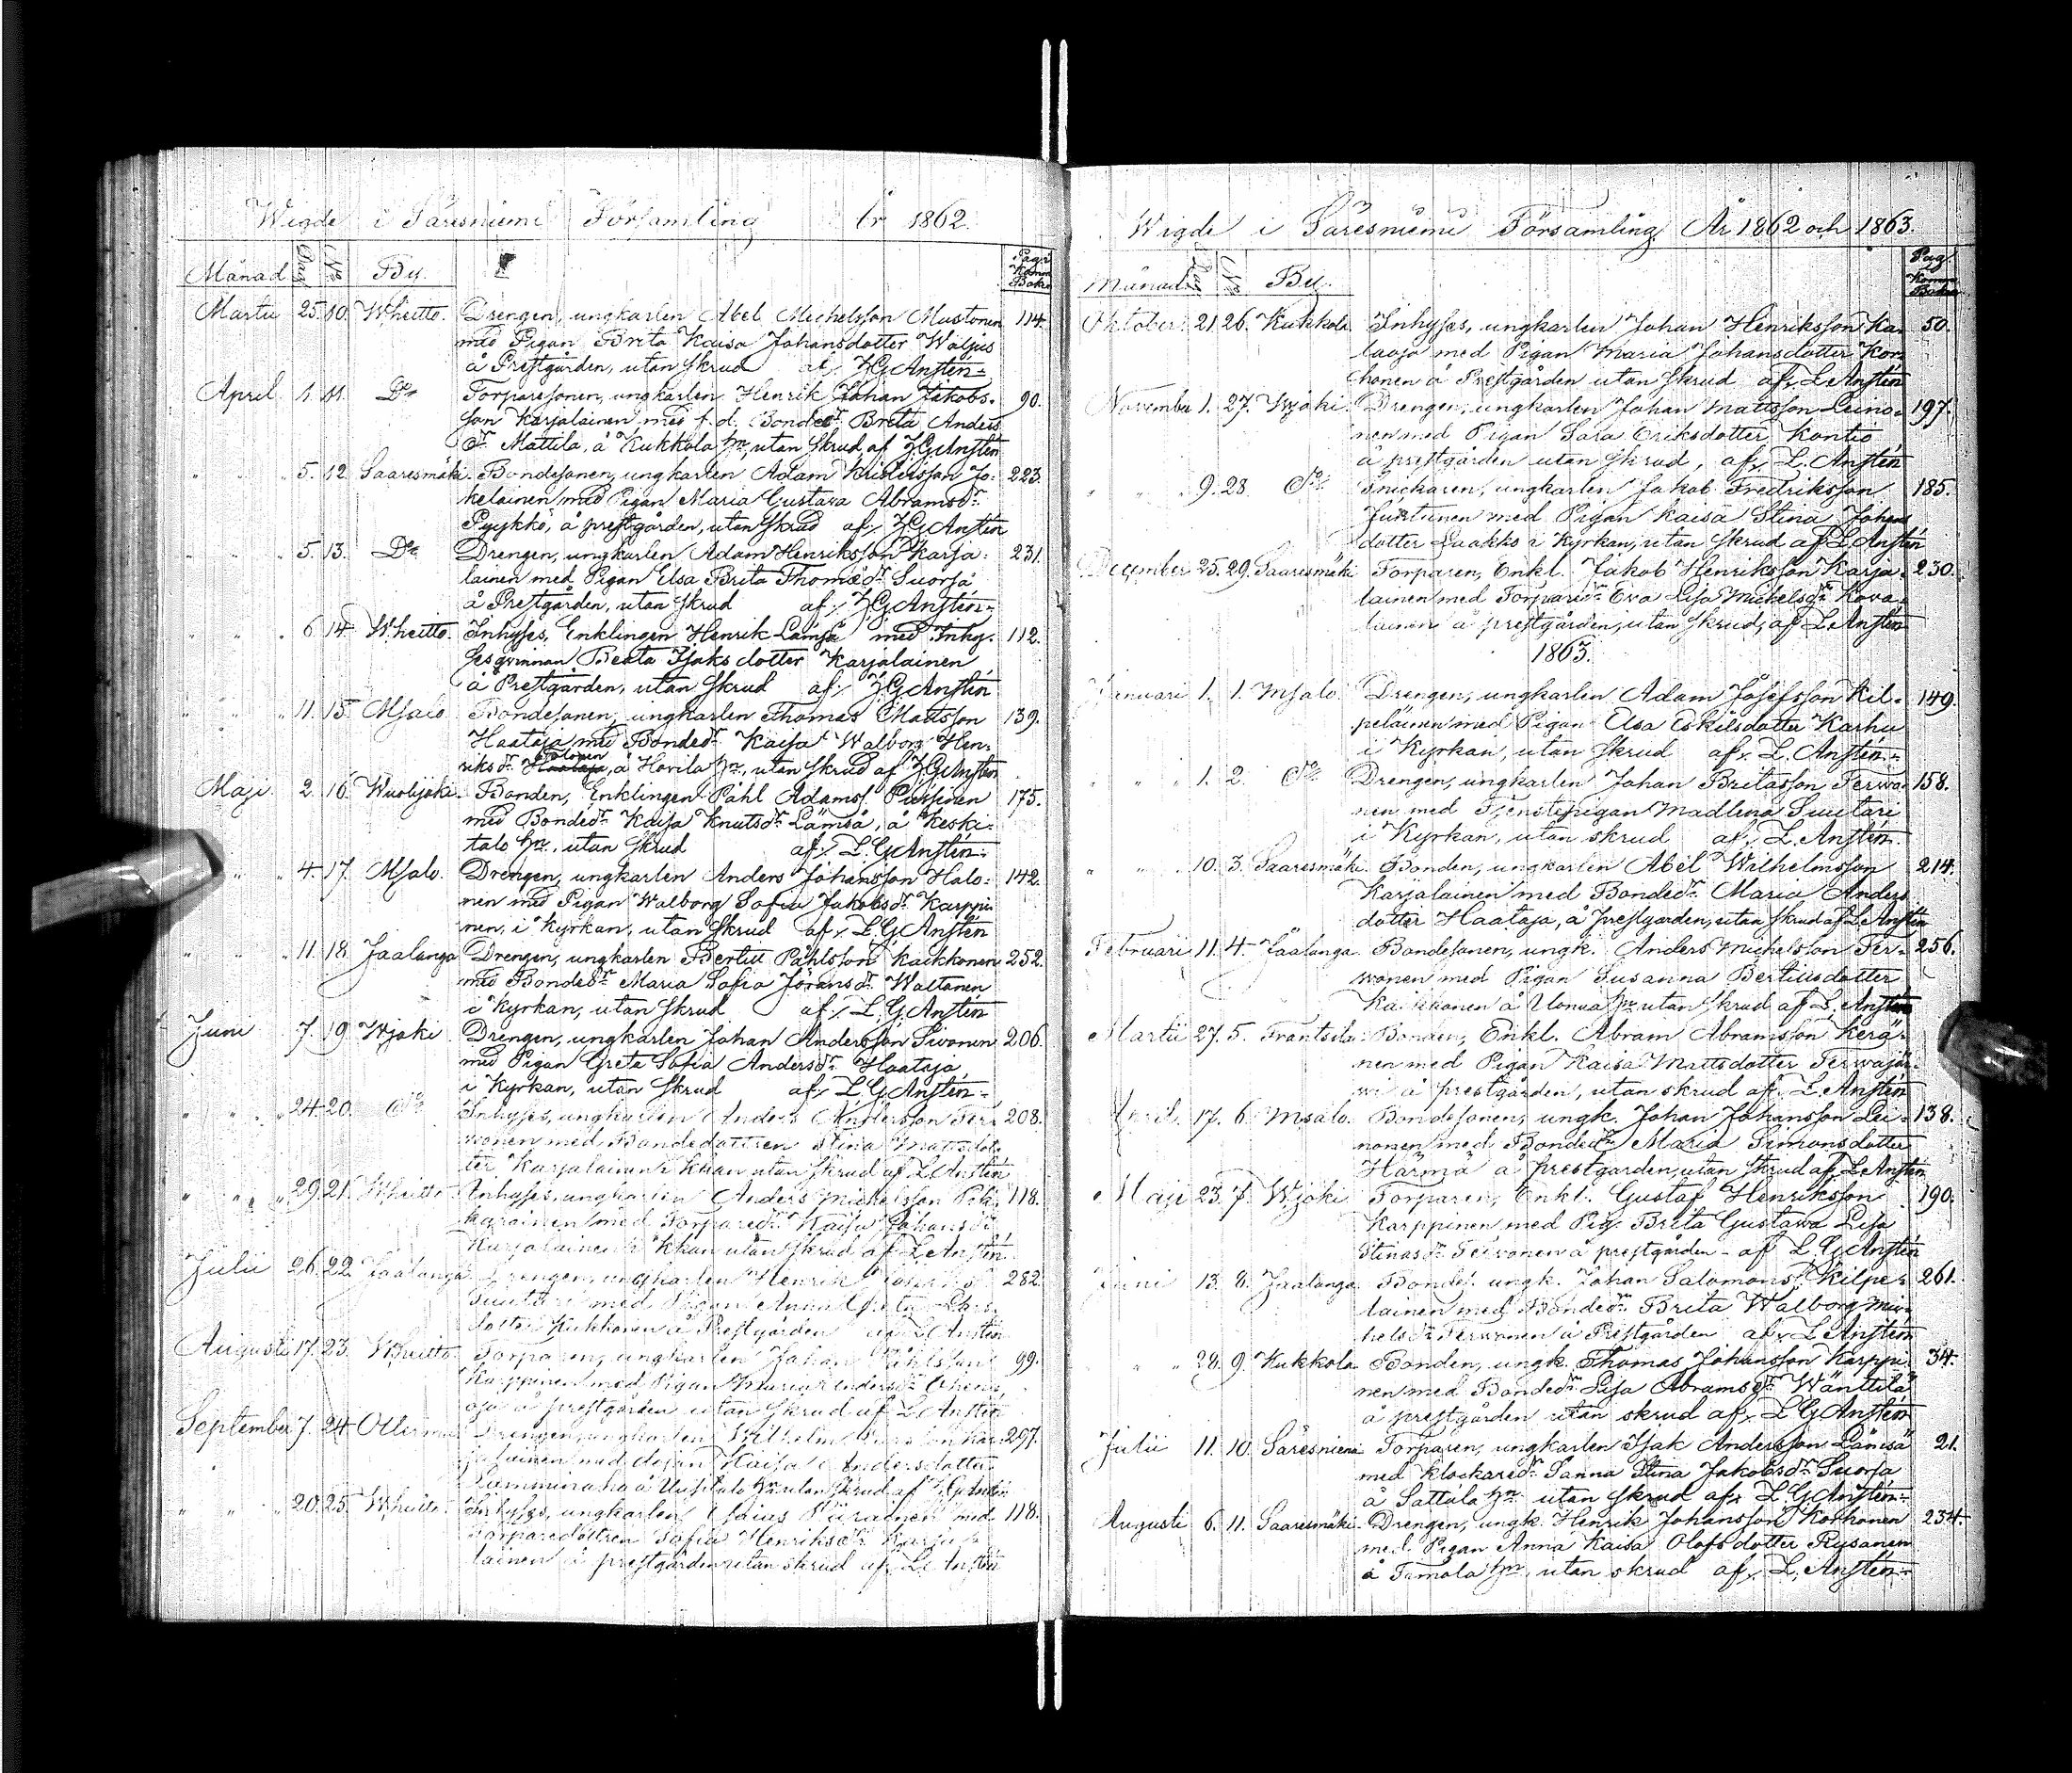 Wigde i Säresniemi Församling År 1862.
Månad Dag No By Pag. i Komm. Boken
Martii 25. 10. Wheitto. Drengen, ungkarlen Abel Michelsson Mustonen 114.
med Pigan Brita Kaisa Johansdotter Waljus
å Prestgården, utan skrud af, J G Anstén
April 1. 11. Do Torparesonen, ungkarlen Henrik Johan Jakobs- 90.
son Karjalainen med f. d. Bondedr Brita Anders
dr Mattila, å Kukkola hn, utan skrud af J G Anstén
" " 5. 12. Saaresmäki. Bondesonen, ungkarlen Adam Jo- 223.
kelainen med Pigan Maria Gustava Abramsdr
Pyykkö, å prestgården, utan skrud af, J G Anstén
" " 5. 13. Do Drengen, ungkarlen Adam Henriksson Karja- 231.
lainen med Pigan Elsa Brita Thomædr Suorsa
å Prestgården, utan skrud af, J G Anstén
" " 6. 14. Wheitto. Inhyses, Enklingen Henrik Lämsä med Inhy- 112.
sesqvinnan Beata Isaks dotter Karjalainen
å Prestgården, utan skrud af, J G Anstén
" " 11. 15. Msalo Bondesonen, ungkarlen Thomas Mattsson 139.
Haataja med Bondedr Kaisa Walborg Hen-
riksdr Haataja, å Hovila hn, utan skrud af J G Anstén
Maji 2. 16. Wuolijoki. Bonden, Enklingen Påhl Adamss. Karppinen 175.
med Bondedr Kaisa Knutsdr Lämsä, å Keski-
talo hn, utan skrud af, L. G Anstén
" " 4. 17. Msalo. Drengen, ungkarlen Anders Johansson Halo- 142.
nen med Pigan Walborg Sofia Jakobsdr Karppi-
nen, i Kyrkan, utan skrud af, L G Anstén
" " 11. 18. Jaalanga Drengen, ungkarlen Bertill Påhlsson Kaikkonen 252.
med Bondedr Maria Sofia Göransdr Waltanen
i Kyrkan, utan skrud af, L. G Anstén
Juni 7. 19. Wjoki Drengen, ungkarlen Johan Andersson Sivonen 206.
med Pigan Greta Sofia Andersdr Haataja
i Kyrkan, utan skrud af, L G Anstén
" " 24. 20. Do Inhyses, ungkarlen Anders Andersson Ter- 208.
wonen med Bondedottren Stina Mattsdot-
ter Karjalainen i Kkan utan skrud af L Anstén
" " 29. 21. Wheitto Inhyses, ungkarlen Anders Michelsson Pik- 118.
karainen med Torparedr Kaisa Johansdr
Karjalainen i Kkan utan skrud af L Anstén
Julii 26. 22. Jaalanga Drengen, ungkarlen Henrik 282.
Suutari med Pigan Anna Greta
dotter Kukkonen å Prestgården af L Anstén
Augusti 17. 23. Wheitto Torparen, ungkarlen Johan Påhlsson 99.
Karppinen med Pigan Maria Andersdr
oja å prestgården utan skrud af L Anstén
September 7. 24. Otterma Drengen, ungkarlen Wilhelm Kar- 297.
jalainen med Kaisa Andersdotter
å Uusitalo hn utan skrud af L G Anstén
" " 20. 25. Wheitto Inhyses, ungkarlen Esaias Piirainen med 118.
Torparedottren Sofia Henriksdr Karja-
lainen å prestgården utan skrud af, L. Anstén
Wigde i Säresniemi Församling År 1862 och 1863.
Månad Dag No By. Pag. i Komm. Boken
Oktober 21. 26. Kukkola Inhyses, ungkarlen Johan Henriksson Ka- 50.
laoja med Pigan Maria Johansdotter Kor-
honen å Prestgården utan skrud af, L Anstén
November 1. 27. Wjoki. Drengen, ungkarlen Johan Mattsson Leino- 197.
nen med Pigan Sara Eriksdotter Kontio
å prestgården utan skrud, af, L. Anstén
" " 9. 28. Do Snickaren, ungkarlen Jakob Fredriksson 185.
Juntunen med Pigan Kaisa Stina Johans
dotter Laakko i Kyrkan, utan skrud af L Anstén
December 25. 29. Saaresmäki Torparen, Enkl. Jakob Henriksson Karja- 230.
lainen med Torparedr Eva Lisa Michelsdr Kova-
lainen å prestgården, utan skrud, af L Anstén
1863.
Januari 1. 1. Msalo Drengen, ungkarlen Adam Josefsson Kil- 149.
peläinen med Pigan Elsa Eskilsdotter Karhu
i Kyrkan, utan skrud af, L. Anstén
" " 1. 2. Do Drengen, ungkarlen Johan Britasson Terwo- 158.
nen med Tjenstepigan Madlena Suutari
i Kyrkan, utan skrud af, L. Anstén
" " 10. 3. Saaresmäki Bonden, ungkarlen Abel Wilhelmsson 214.
Karjalainen med Bondedr Maria Anders
dotter Haataja, å prestgården, utan skrud af L Anstén
Februari 11. 4. Jaalanga. Bondesonen, ungk. Anders Michelsson Ter- 256.
wonen med Pigan Susanna Bertilsdotter
Kaikkonen å Uonua hn utan skrud af L Anstén
Martii 27. 5. Frantsila Bonden, Enkl. Abram Abramsson Kerä- 
nen med Pigan Kaisa Mattsdotter Terwajär-
wi å prestgården, utan skrud af, L Anstén
April 17. 6. Msalo. Bondesonen, ungk. Johan Johansson Lei- 138.
nonen med Bondedr Maria Simonsdotter
Härmä å prestgården, utan skrud af, L Anstén
Maji 23. 7. Wjoki Torparen, Enkl. Gustaf Henriksson 190.
Karppinen med Pig. Brita Gustava Lisa
Stinasdr Terwonen å prestgården - af L. G Anstén
Juni 13. 8. Jaalanga Bondes. ungk. Johan Salomonss. Kilpe- 261.
lainen med Bondedr Brita Walborg Mic-
helsdr Terwonen å Prestgården af, L Anstén
" " 28. 9. Kukkola Bonden, ungk. Thomas Johansson Karppi- 34.
nen med Bondedr Lisa Abramsdr Wänttilä
å prestgården utan skrud af, L G Anstén
Julii 11. 10. Säresniemi Torparen, ungkarlen Isak Andersson Lämsä 21.
med Klockaredr Sanna Stina Jakobsdr Suorsa
å Sattula hn utan skrud af, L. G Anstén
Augusti 6. 11. Saaresmäki. Drengen, ungk. Henrik Johansson Korhonen 234.
med Pigan Anna Kaisa Olofsdotter Rysanen
å Tamola hn, utan skrud af, L. Anstén